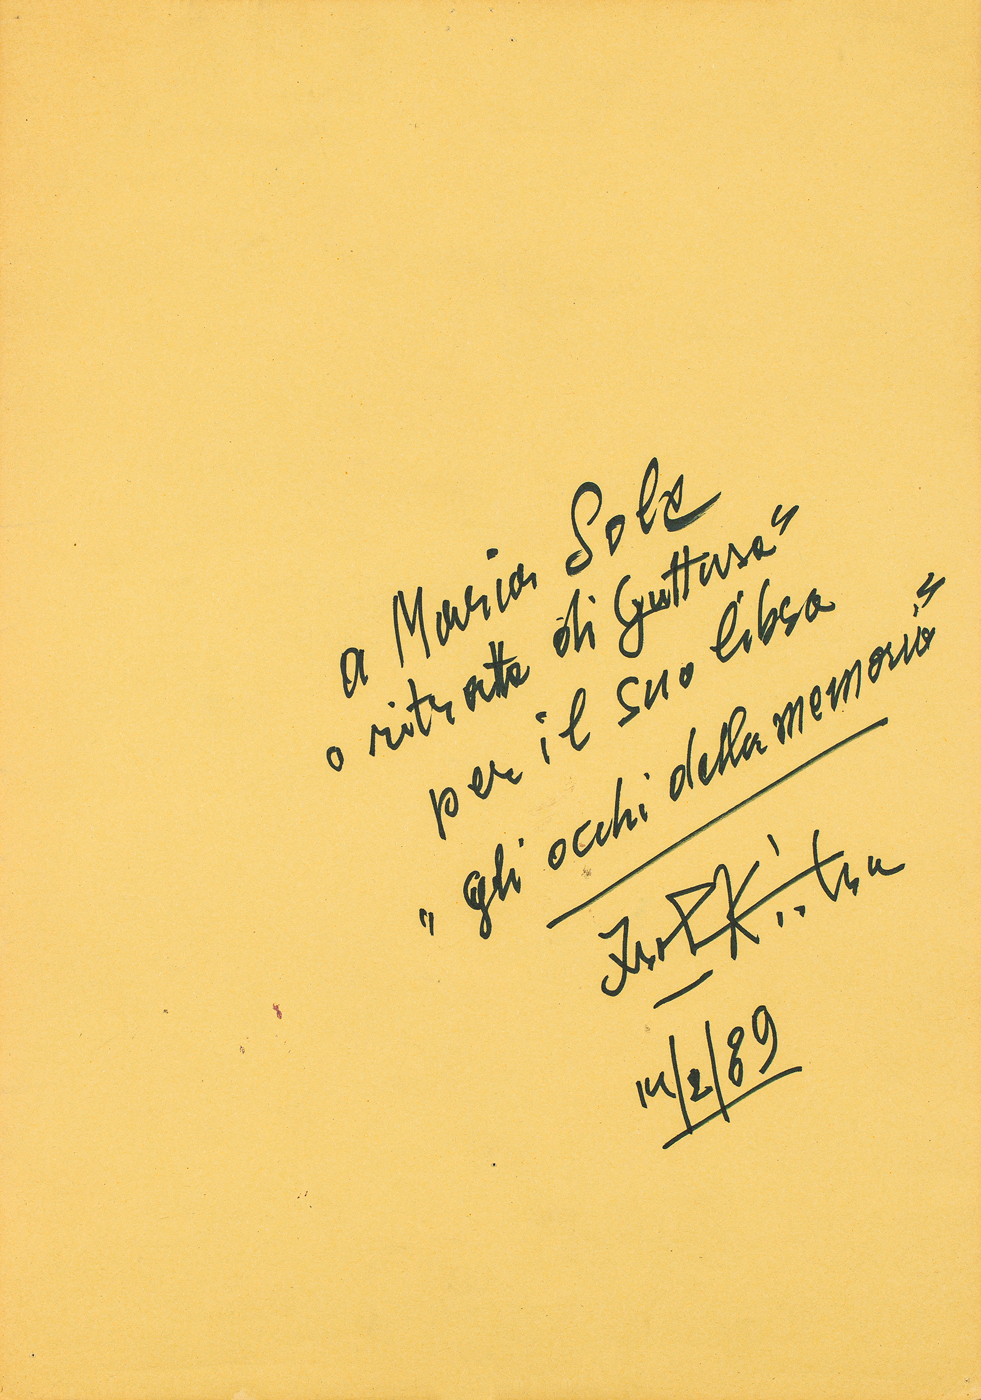 a Maria Sole
" ritratto di Guttuso"
per il suo libro
"gli occhi della memoria"
14/2/89